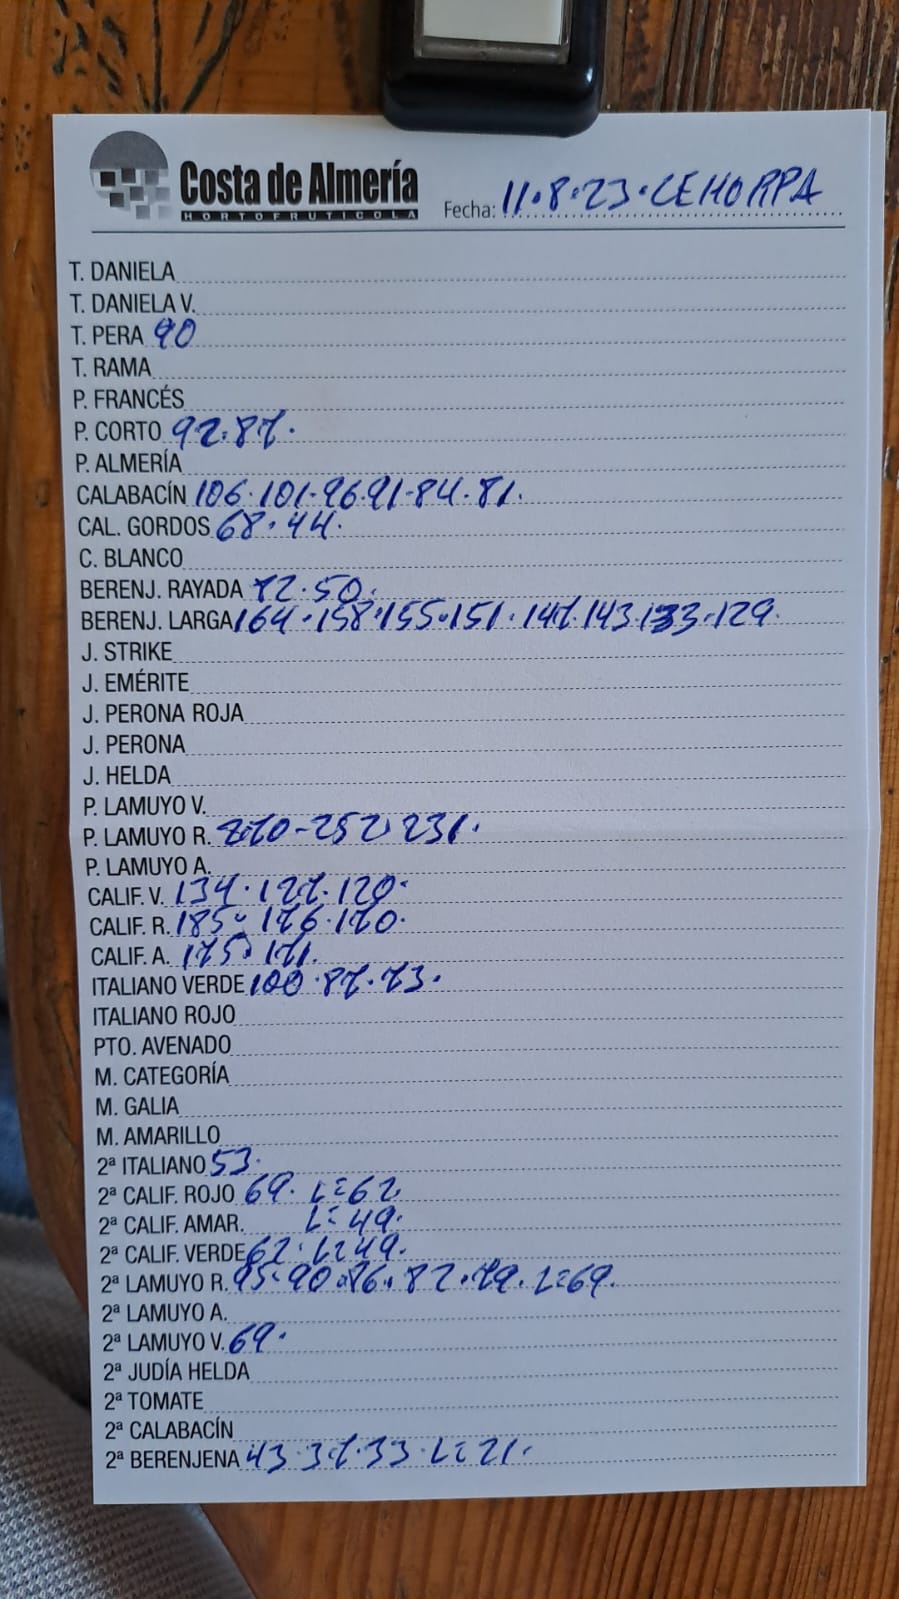 Costa de Almería
HORTOFRUTICOLA
Fecha: 11.8.23.CEHORPA
T. DANIELA
T. DANIELA V.
T. PERA 90
T. RAMA
P. FRANCÉS
P. CORTO 92.87.
P. ALMERÍA
CALABACÍN 106.101-96.91-84.81.
CAL. GORDOS 68.44.
C. BLANCO
BERENJ. RAYADA 72.50.
BERENJ. LARGA 164.158.155.151.147.143.133.129.
J. STRIKE
J. EMÉRITE
J. PERONA ROJA
J. PERONA
J. HELDA
P. LAMUYO V.
P. LAMUYO R. 270-252 231.
P. LAMUYO A.
CALIF. V. 134.127.120.
CALIF. R. 185.176.170.
CALIF. A. 175.171.
ITALIANO VERDE 100.87.73.
ITALIANO ROJO
PTO. AVENADO
M. CATEGORÍA
M. GALIA
M. AMARILLO
2ª ITALIANO 53.
2ª CALIF. ROJO 69. L=62.
2ª CALIF. AMAR. L=49.
2ª CALIF. VERDE 62. L=49.
2ª LAMUYO R. 95.90.86.82.79. L=69.
2ª LAMUYO A.
2ª LAMUYO V. 69.
2ª JUDÍA HELDA
2ª TOMATE
2ª CALABACÍN
2ª BERENJENA 43.37.33.L=21.